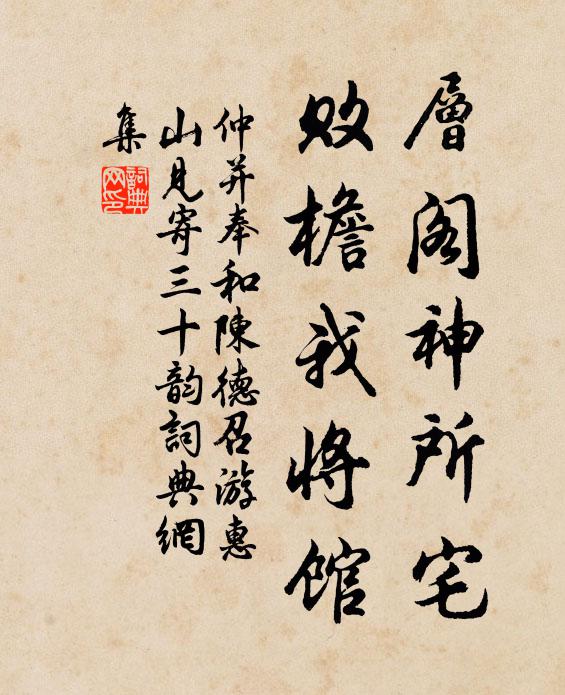 層閣神所宅
敗檐我將館
仲并奉和陳德召游惠
山見寄三十韵詞典網
集
詞典
网印